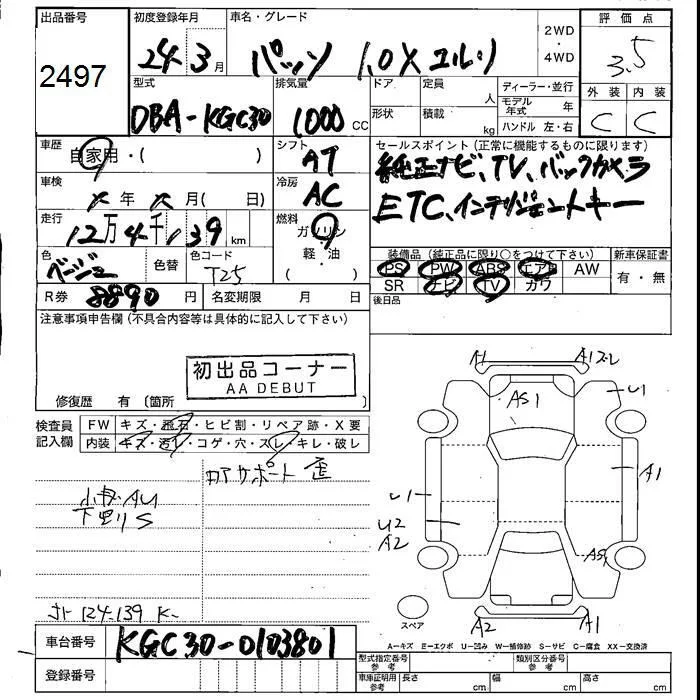 出品番号 初度登録年月 車名・グレード 2WD・4WD 評価点
2497 24年3月 パッソ 1.0X ユルリ 3.5
型式 排気量 ドア 定員 人 ディーラー・並行 外装 内装
DBA-KGC30 1000 CC 形状 積載 kg モデル年式 年 C C
ハンドル 左・右
車歴 自家用・( ) シフト AT セールスポイント (正常に機能するものに限ります)
純正ナビ、TV、バックカメラ
車検 ✕年 ✕月( 日) 冷房 AC ETC、インテリジェントキー
走行 12万4千139 km 燃料 ガソリン・軽・油・( )
装備品 (純正品に限り○をつけて下さい) 新車保証書
色 ベージュ 色替 色コード T25 PS PW ABS エアB AW 有・無
SR ナビ TV カワ
R券 8890 円 名変期限 月 日 後日品
注意事項申告欄 (不具合内容等は具体的に記入して下さい)
初出品コーナー
AA DEBUT
修復歴 有 (箇所 )
検査員記入欄 FW キズ・飛石・ヒビ割・リペア跡・X要
内装 キズ・汚レ・コゲ・穴・スレ・キレ・破レ
コアサポート 歪
小キズAU
下廻りS
メーター 124.139 K-
A1 A1 2-2
AS1 U1
U1 A1
U2
A2 AS1
A2 A1
スペア
A-キズ E-エクボ U-凹み W-補修跡 S-サビ C-腐食 XX-交換済
車台番号 KGC30-0103801
登録番号
型式指定番号 参考 類別区分番号 参考
車庫証明用 参考 長さ cm 幅 cm 高さ cm